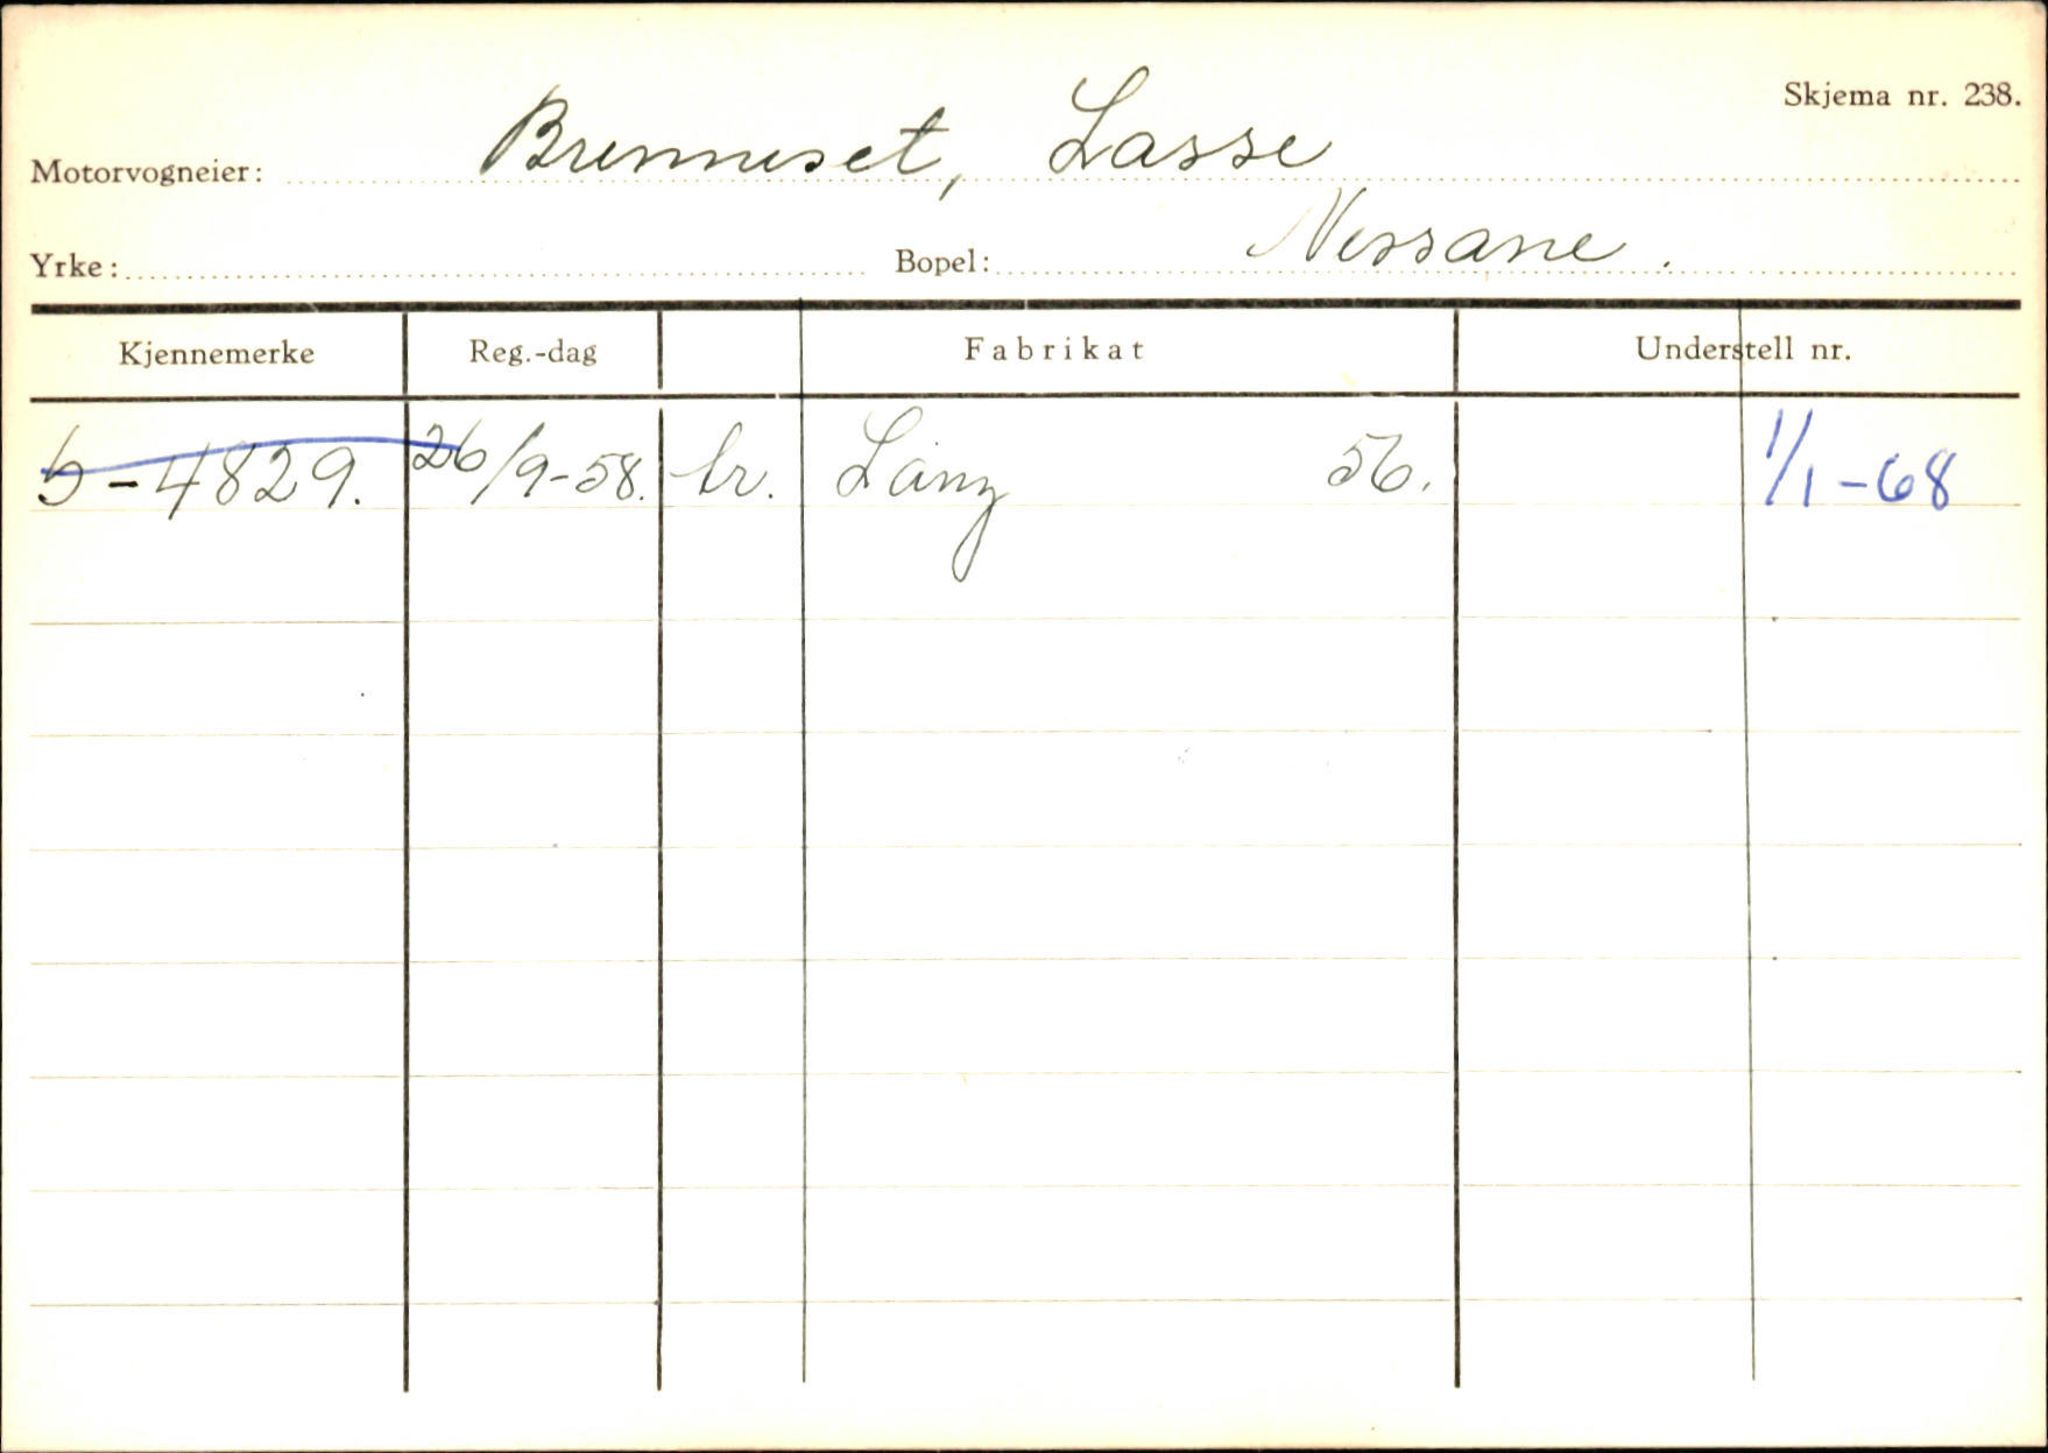 Skjema nr. 238.
Motorvogneier: Brenneset, Lasse
Yrke: Bopel: Nessane.
Kjennemerke Reg.-dag Fabrikat Understell nr.
S-4829. 26/9-58. tr. Lanz 56. 1/1-68